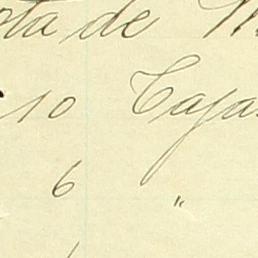 ota de
10 Cajas
6 "